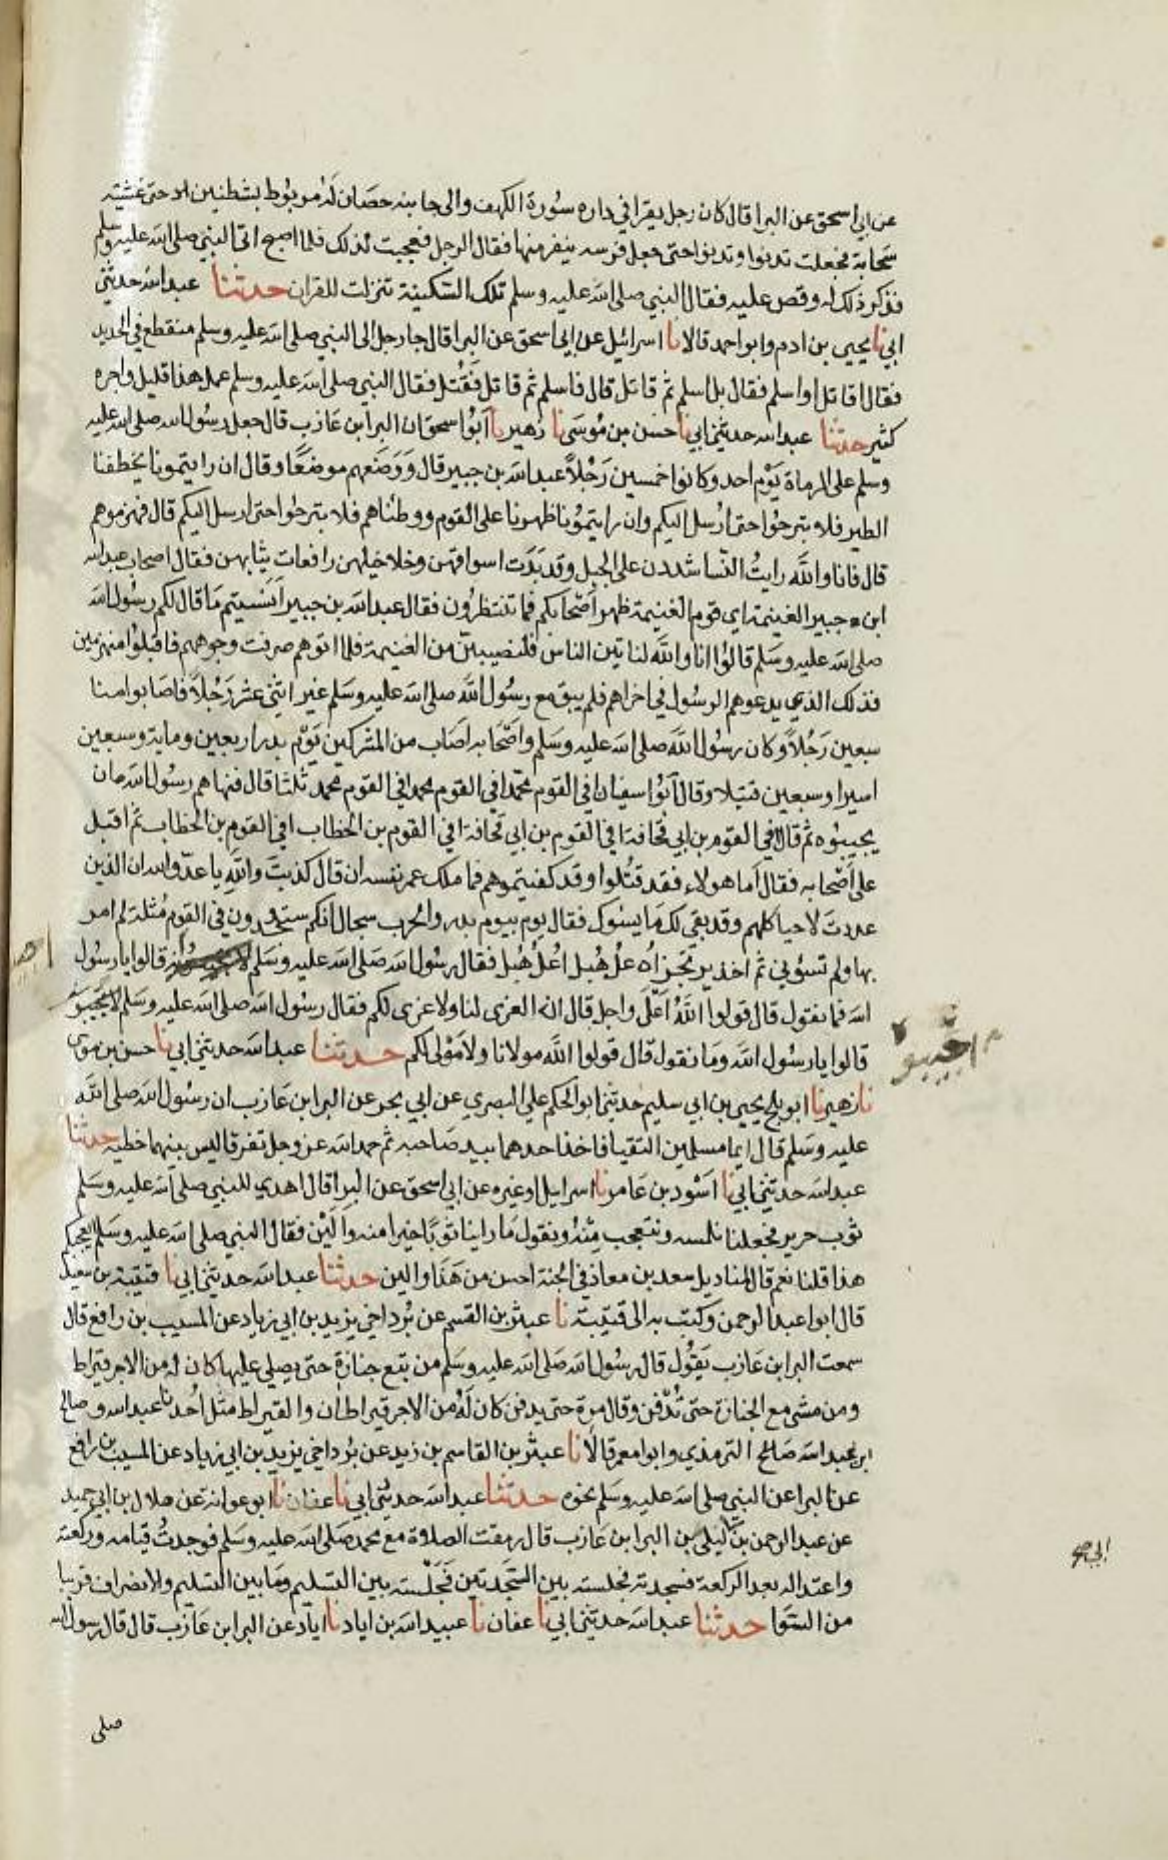 عن ابي اسحق عن البرا قال كان رجل يقرا في داره سُورة الكهف والى جانبه حصَان لَهُ مربوُط بشطنين حتى غشيته
سَحابة فجعلت تدنوا وتدنوا حتى جعل فرسه ينفر منها فقال الرجل فعجبت لذلك فلما اصبح اتى النبي صلى الله عليه وسلم
فذكر ذلك له وقص عليه فقال النبي صلى الله عليه وسلم تلك السَكينة تنزلت للقران حدثنا عبد الله حدثني
ابي نا يحيى بن ادم وابو احمد قالا نا اسرائيل عن ابي اسحق عن البرا قال جا رجل الى النبي صلى الله عليه وسلم متقطع في الحديد
فقال اقاتل او اسلم فقال بل اسلم ثم قاتل قال فاسلم ثم قاتل فَقُتل فقال النبي صلى الله عليه وسلم عمل هذا قليل واجره
كثير حدثنا عبد الله حدثني ابي نا حسن بن مُوسَى نا زهير نا ابُوا سحق ان البرا بن عَازب قال جعل رسُول الله صلى الله عليه
وسلم على الرماة يَوْم احد وكانوا خمسين رَجُلاً عبد الله بن جبير قال وَوَضعهم موضعًا وقال ان رايتمونا تخطفنا
الطير فلا تبرحُوا حتى ارُسل اليكم وان رايتمُونا ظهرنا على القوم ووطئناهم فلا تبرحُوا حتى ارسل اليكم قال فهزموهم
قال فانا والله رايتُ النّسا شددن على الجبل وقد بَدَت اسواقهن وخلاخيلهن رافعات ثيابهن فقال اصحاب عبد الله
ابن جبير الغنيمة اي قوم الغنيمة ظهر اَصْحابكم فما تنتظرُون فقال عبد الله بن جبير اَنسيتم مَا قال لكم رسُول الله
صلى الله عليه وسَلم قالوُا انا والله لناتين الناس فلنصيبنّ من الغنيمة فلما اتوهم صرفت وجوههم فاقبلُوا منهزمين
فذلك الذي يدعوهم الرسُول في اخراهم فلم يبق مع رسُول الله صلى الله عليه وسَلم غير اثني عشر رَجُلاً فاصَابوا منا
سبعين رَجُلاً وكان رسُول الله صلى الله عليه وسَلم واصْحَابه اصَاب من المشركين يَوْم بدر اربعين وماية وسبعين
اسيرا وسبعين قتيلا وقال ابُوا سفيان افي القوم محمّد افي القوم محمد افي القوم محمد ثلثا قال فنهاهم رسُول الله ان
يجيبوُه ثم قال افي القوم بن ابي قحافة افي القوم بن ابي قحافة افي القوم بن الخطاب افي القوم بن الخطاب ثم اقبل
على اَصْحابه فقال اَما هولاء فقد قتُلوا وقد كفيتموهم فما ملك عمر نفسه ان قال كذبت والله يا عدّو الله ان الذين
عددت لاحيا كلهم وقد بقي لك مَا يسُوك فقال يوم بيوم بدر والحرب سجال انكم ستجدون في القوم مُثلة لم امر
بها ولم تسُوني ثم اخذ يرتجز اُعلُ هُبل اعُلُ هُبل فقال رسُول الله صَلى الله عليه وسَلم قالوا يا رسُول
الله فما نقول قال قولوا اللهُ اَعلَى واجل قال ان العزى لنا ولا عزى لكم فقال رسُول الله صلى الله عليه وسَلم لا تجيبُو
قالوا يا رسُول الله وما نقول قال قولوا الله مولانا ولا مَوْلى لكم حدثنا عبد الله حدثني ابي نا حسن بن موسى
نا زهير نا ابو بلج يحيى بن ابي سليم حدثني ابو الحكم علي البصري عن ابي بحر عن البرا بن عَازب ان رسُول الله صلى الله
عليه وسَلم قال ايما مسلمين التقيا فاخذ احدهما بيد صَاحبه ثم حمد الله عز وجل تفرقا ليس بينهما خطيه حدثنا
عبد الله حدثني ابي نا اَسْود بن عَامر نا اسرايل او غيره عن ابي اسحق عن البرا قال اهدي للنبي صلى الله عليه وسَلم
ثوب حرير فجعلنا نلمسه ونتعجب مِنْهُ ونقول مَا راينا ثَوبًا خيرا منه واَلْيَن فقال النبي صلى الله عليه وسَلم ايعجبكم
هذا قلنا نعم قال لمناديل سعد بن معاذ في الجنة احسن من هَذا والين حدثنا عبد الله حدثني ابي نا قتيبة بن سعيد
قال ابوا عبد الرحمن وكتب به الى قتيبة نا عبثر بن القسم عن بُرد اخي يزيد بن ابي زياد عن المسيب بن رافع قال
سمعت البرا بن عَازب يَقُول قال رسُول الله صَلى الله عليه وسَلم من تبع جنازة حتى يصلي عليها كان له من الاجر قيراط
ومن مشى مع الجنازة حتى تُدْفن وقال مرة حتى يدفن كان لَهُ من الاجر قيراطان والقيراط مثل اُحُد نا عبد الله وصالح
بن عبد الله صَالح الترمذي وابوا معمر قالاَ نا عبثر بن القاسم بن زيد عن برُد اخي يزيد بن ابي زياد عن المسيب بن رافع
عن البرا عن النبي صلى الله عليه وسَلم نحوه حدثنا عبد الله حدثني ابي نا عفان نا ابو عوانة عن هلال بن ابي حميد
عن عبد الرحمن بن ليلى عن البرا بن عَازب قال رمقت الصلاة مع محمد صَلى الله عليه وسَلم فوجدتُ قيامه وركعته
واعتداله بعد الركعة فسجدته فجلسته بين السَّجدتين فَجَلْسته بين التسليم ومَا بين التسليم والانصراف قريبا
من السَّوَا حدثنا عبد الله حدثني ابي نا عفان نا عبيد الله بن اياد نا اياد عن البرا بن عَازب قال قال رسول الله
صلى